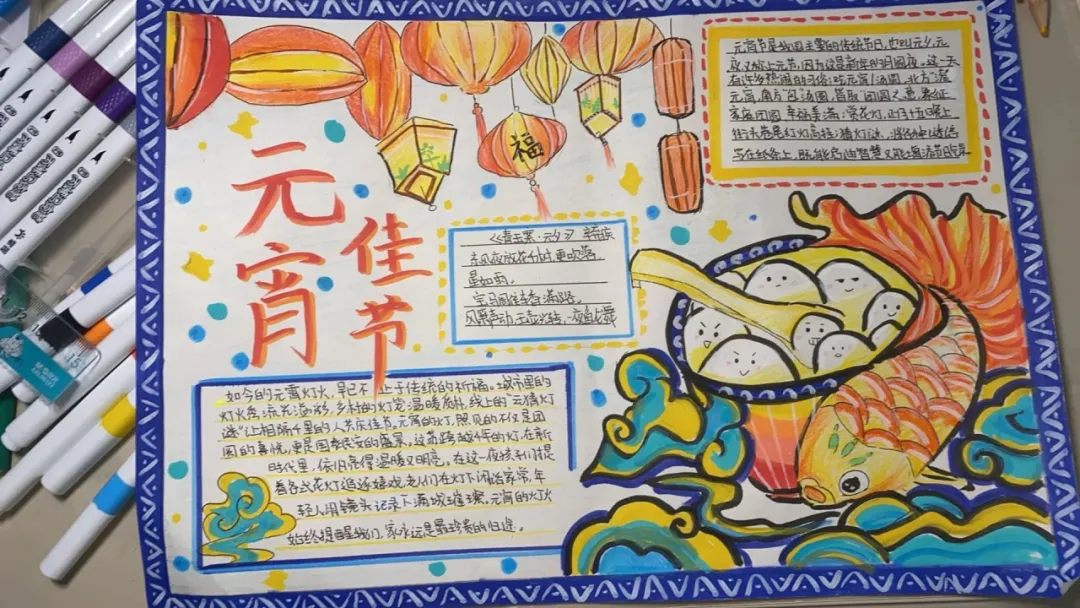 元宵
佳节
福
元宵节是我国重要的传统节日,也叫元夕、元
夜又称上元节,因为这是新年的月圆夜,这一天
有许多热闹的习俗:吃元宵/汤圆,北方"滚
元宵,南方"包"汤圆,皆取"团圆"之意,象征
家庭团圆,幸福美满;赏花灯,正月十五晚上
街头巷尾红灯高挂;猜灯谜,将谜
写在纸条上,既能启迪智慧又能增添节日气氛
《青玉案·元夕》辛弃疾
东风夜放花千树,更吹落,
星如雨。
宝马雕车香满路。
凤箫声动,玉壶光转,一夜鱼龙舞
如今的元宵灯火,早已不止于传统的祈福。城市里的
灯火秀流光溢彩,乡村的灯笼温暖质朴,线上的"云猜灯
谜"让相隔千里的人共乐佳节。元宵的灯,照见的不仅是团
圆的喜悦,更是国泰民安的盛景。这盏跨越千年的灯,在新
时代里,依旧亮得温暖又明亮。在这一夜孩子们提
着各式花灯追逐嬉戏,老人们在灯下闲话家常,年
轻人用镜头记录下满城璀璨。元宵的灯火
始终提醒我们,家永远是最珍贵的归途。